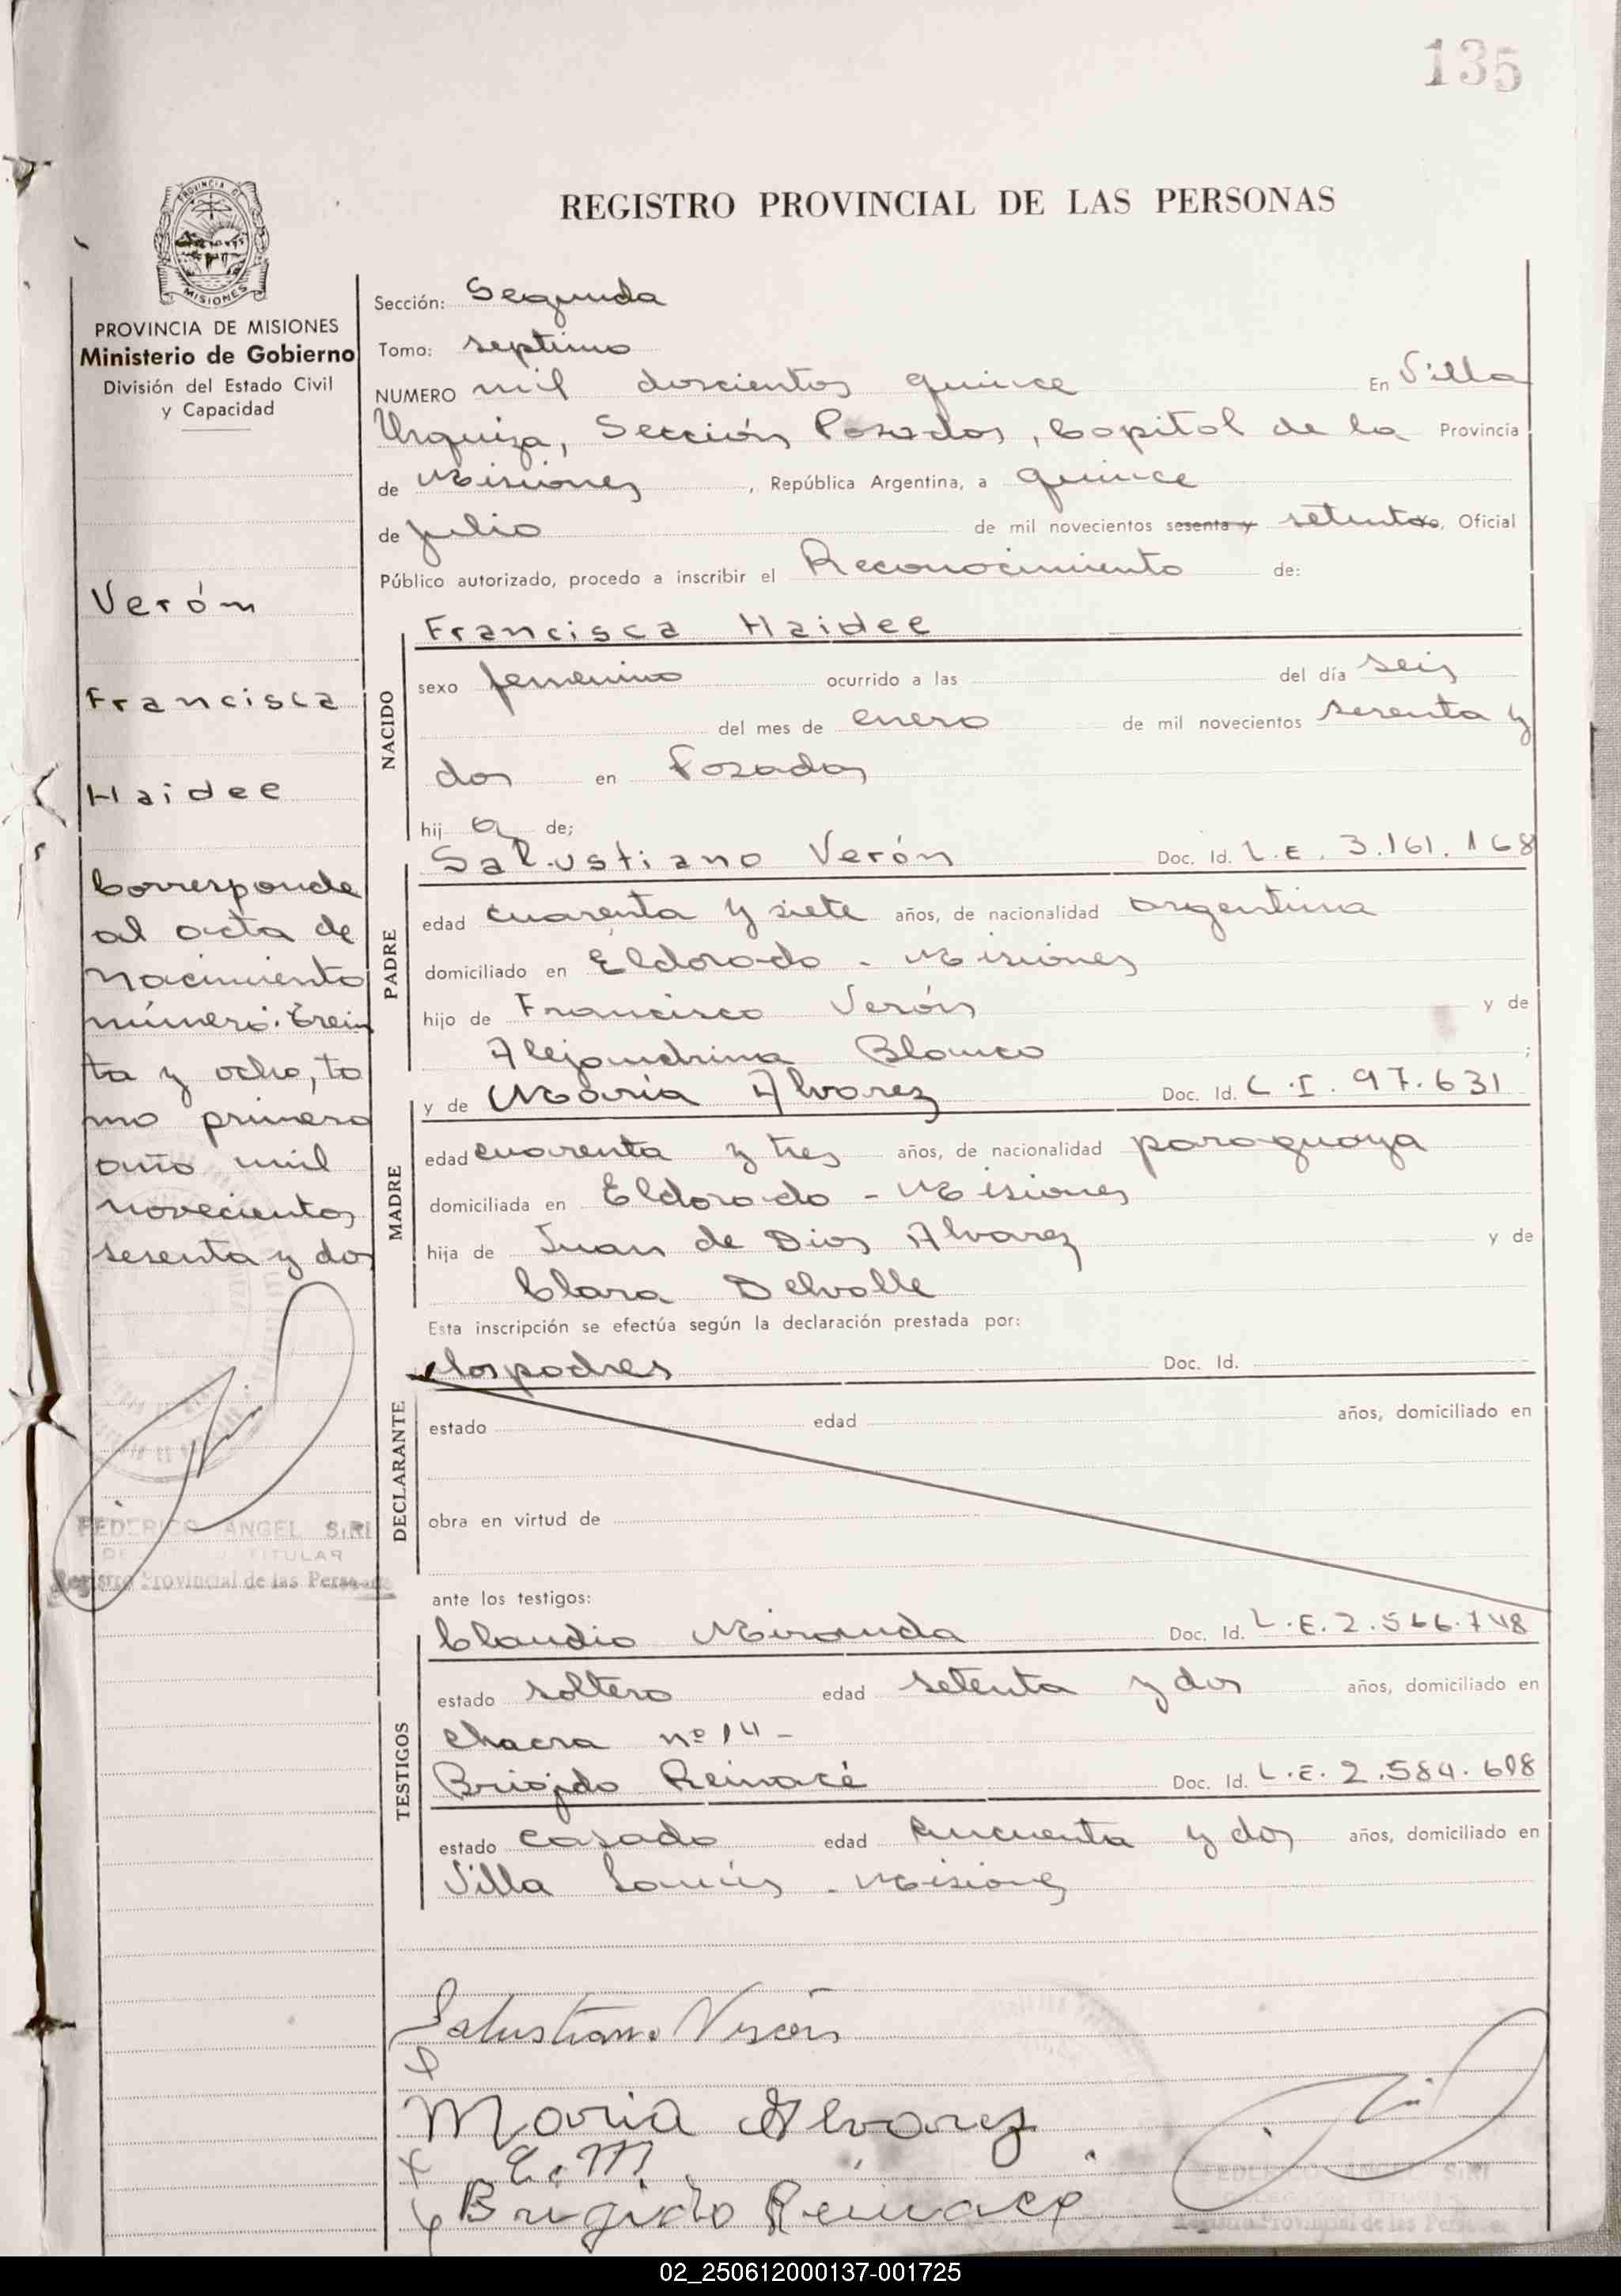 135
PROVINCIA DE
MISIONES
REGISTRO PROVINCIAL DE LAS PERSONAS
PROVINCIA DE MISIONES
Ministerio de Gobierno
División del Estado Civil
y Capacidad
Verón
Francisca
Haidee
Corresponde
al acta de
nacimiento
número: trein
ta y ocho, to
mo primero
año mil
novecientos
sesenta y dos
FEDERICO ANGEL SIRI
TITULAR
Registro Provincial de las Personas
Sección: Segunda
Tomo: septimo
NUMERO mil doscientos quince En Villa
Urquiza, Sección Posadas, Capital de la Provincia
de Misiones, República Argentina, a quince
de julio de mil novecientos sesenta y setenta, Oficial
Público autorizado, procedo a inscribir el Reconocimiento de:
NACIDO
Francisca Haidee
sexo femenino ocurrido a las del día seis
del mes de enero de mil novecientos sesenta y
dos en Posadas
hij a de;
PADRE
Salustiano Verón Doc. Id. L.E. 3.161.168
edad cuarenta y siete años, de nacionalidad argentina
domiciliado en Eldorado - Misiones
hijo de Francisco Verón y de
Alejandrina Blanco ;
MADRE
y de María Alvarez Doc. Id. C.I. 97.631
edad cuarenta y tres años, de nacionalidad paraguaya
domiciliada en Eldorado - Misiones
hija de Juan de Dios Alvarez y de
Clara Delvalle
Esta inscripción se efectúa según la declaración prestada por:
DECLARANTE
los padres Doc. Id.
estado edad años, domiciliado en
obra en virtud de
ante los testigos:
TESTIGOS
Claudio Miranda Doc. Id. L.E. 2.566.748
estado soltero edad setenta y dos años, domiciliado en
chacra nº 14 -
Brigido Reinacé Doc. Id. L.E. 2.584.608
estado casado edad cincuenta y dos años, domiciliado en
Villa Lanús - Misiones
Salustiano Verón
Maria Alvarez
C. M.
Brigido Reinace
FEDERICO ANGEL SIRI
Registro Provincial de las Personas
02_250612000137-001725